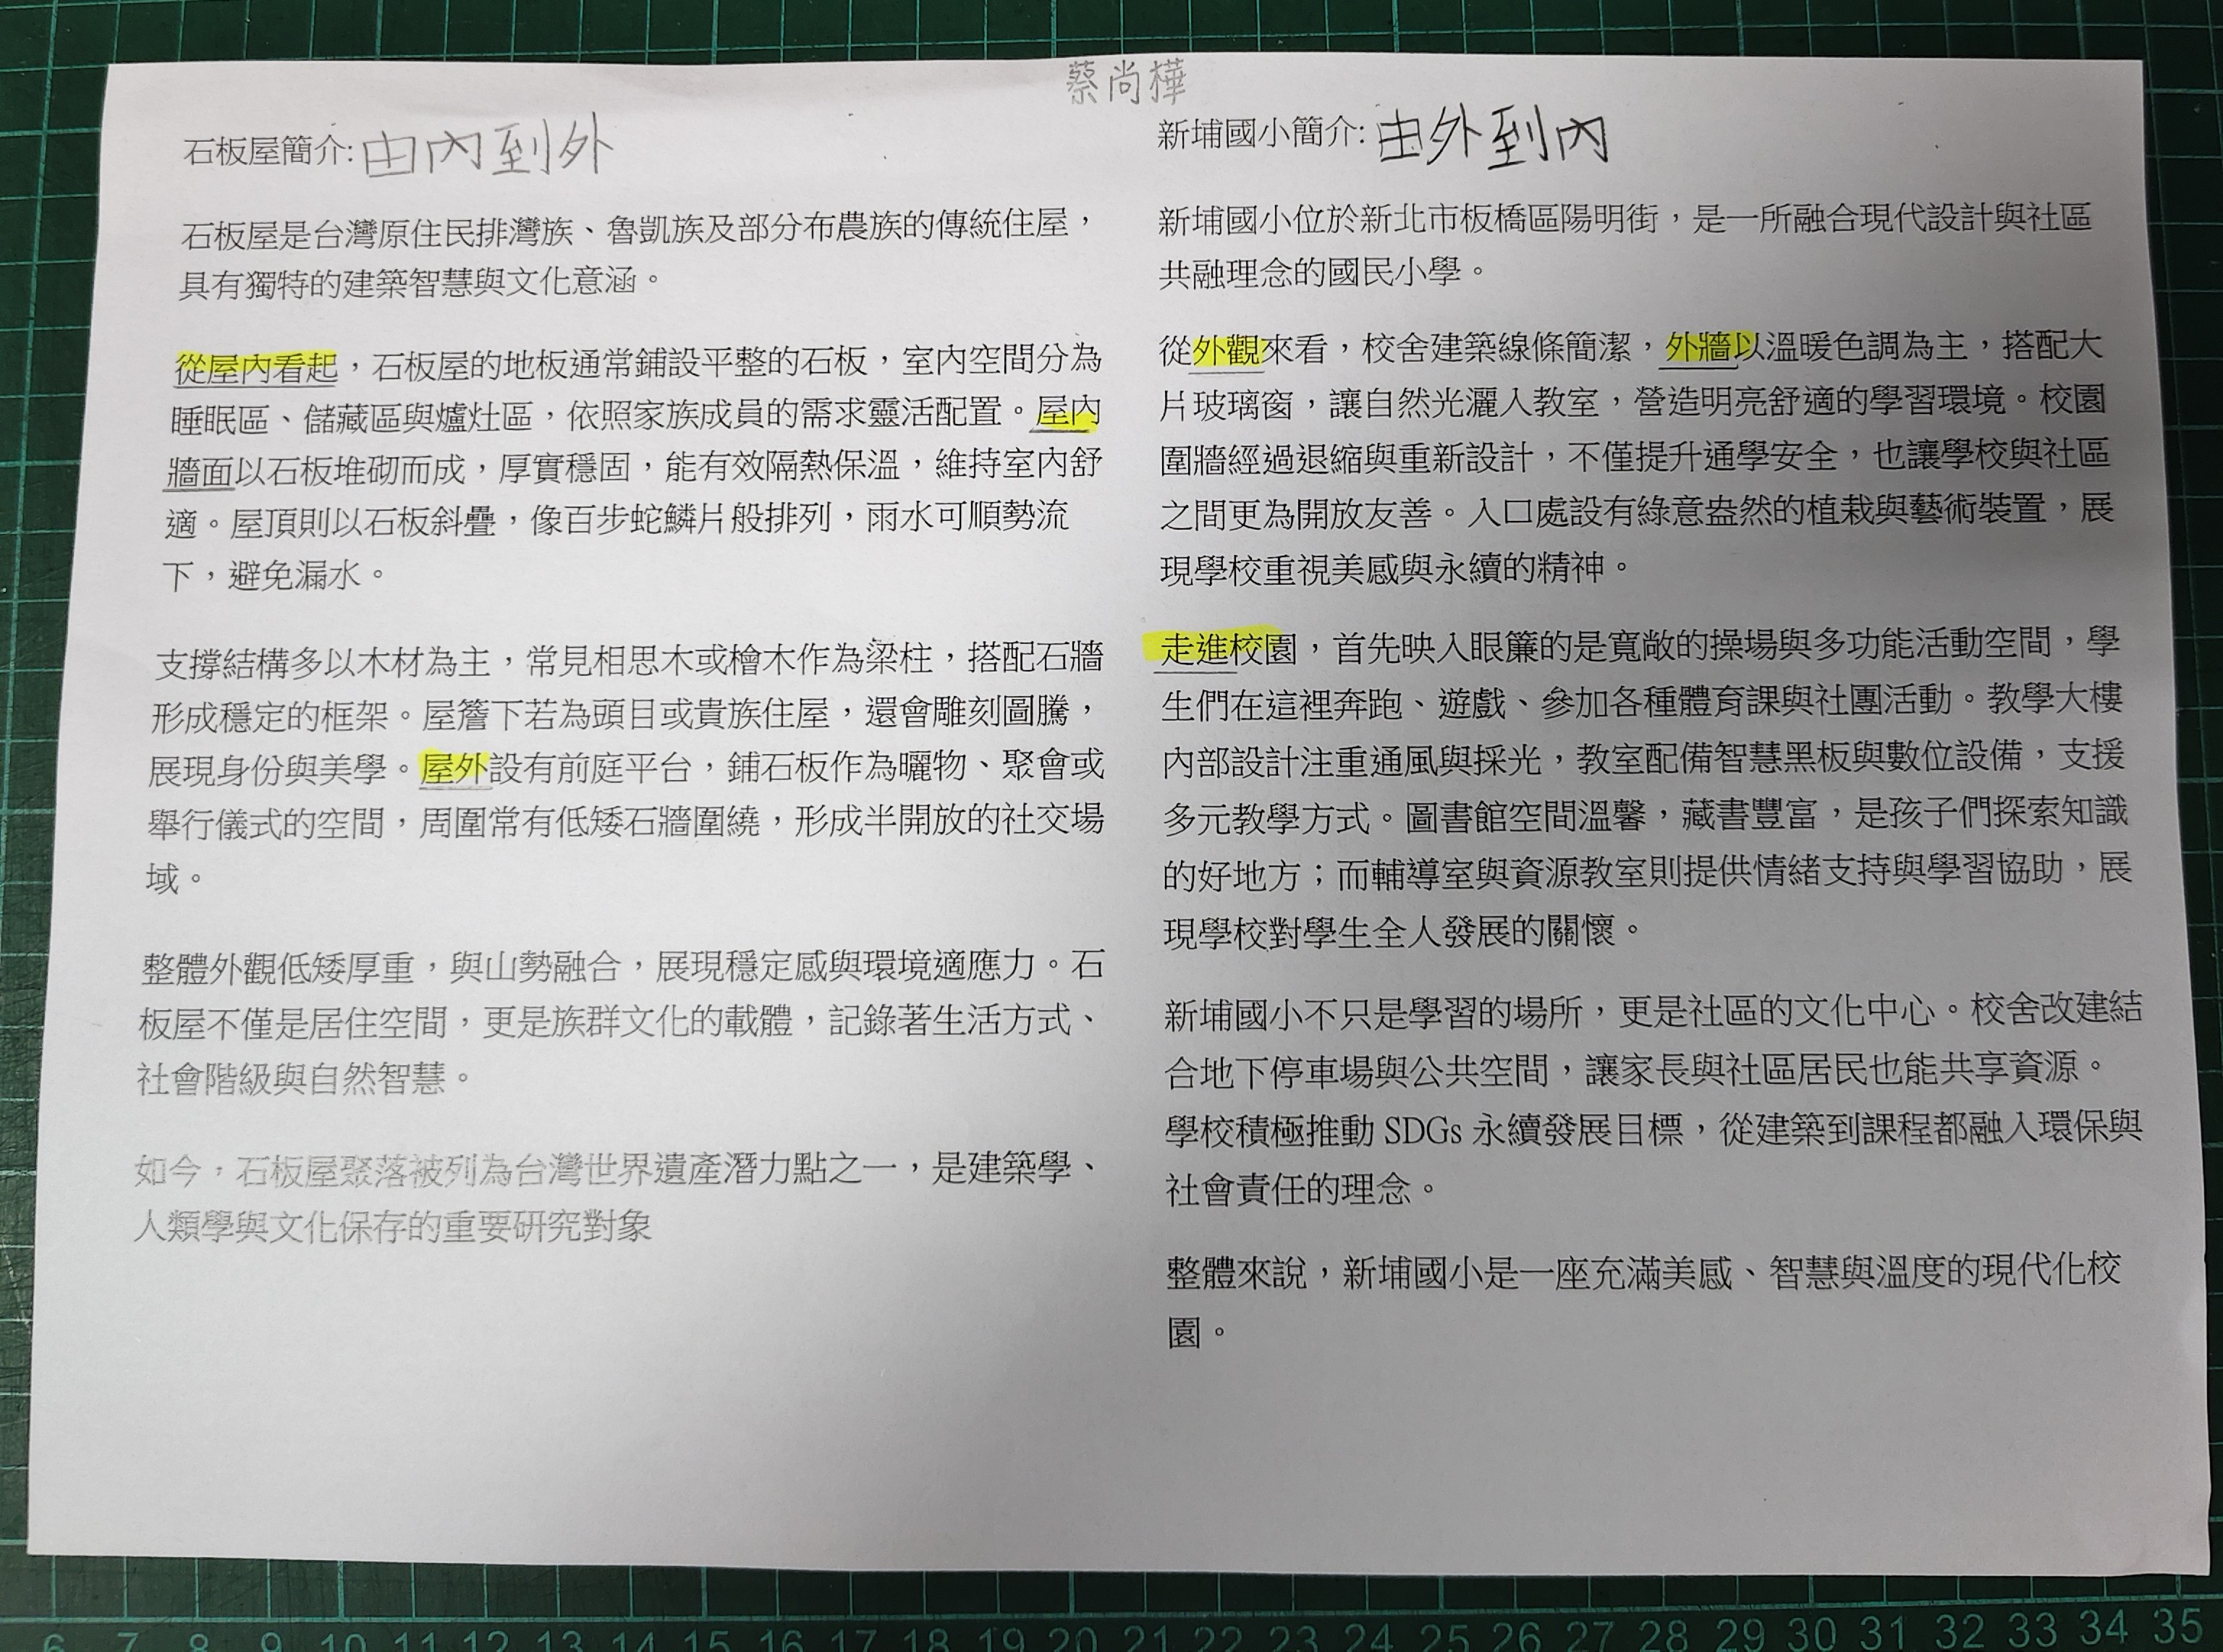 蔡尚樺
石板屋簡介:由內到外
石板屋是台灣原住民排灣族、魯凱族及部分布農族的傳統住屋，
具有獨特的建築智慧與文化意涵。
從屋內看起，石板屋的地板通常鋪設平整的石板，室內空間分為
睡眠區、儲藏區與爐灶區，依照家族成員的需求靈活配置。屋內
牆面以石板堆砌而成，厚實穩固，能有效隔熱保溫，維持室內舒
適。屋頂則以石板斜疊，像百步蛇鱗片般排列，雨水可順勢流
下，避免漏水。
支撐結構多以木材為主，常見相思木或檜木作為梁柱，搭配石牆
形成穩定的框架。屋簷下若為頭目或貴族住屋，還會雕刻圖騰，
展現身份與美學。屋外設有前庭平台，鋪石板作為曬物、聚會或
舉行儀式的空間，周圍常有低矮石牆圍繞，形成半開放的社交場
域。
整體外觀低矮厚重，與山勢融合，展現穩定感與環境適應力。石
板屋不僅是居住空間，更是族群文化的載體，記錄著生活方式、
社會階級與自然智慧。
如今，石板屋聚落被列為台灣世界遺產潛力點之一，是建築學、
人類學與文化保存的重要研究對象
新埔國小簡介:由外到內
新埔國小位於新北市板橋區陽明街，是一所融合現代設計與社區
共融理念的國民小學。
從外觀來看，校舍建築線條簡潔，外牆以溫暖色調為主，搭配大
片玻璃窗，讓自然光灑入教室，營造明亮舒適的學習環境。校園
圍牆經過退縮與重新設計，不僅提升通學安全，也讓學校與社區
之間更為開放友善。入口處設有綠意盎然的植栽與藝術裝置，展
現學校重視美感與永續的精神。
走進校園，首先映入眼簾的是寬敞的操場與多功能活動空間，學
生們在這裡奔跑、遊戲、參加各種體育課與社團活動。教學大樓
內部設計注重通風與採光，教室配備智慧黑板與數位設備，支援
多元教學方式。圖書館空間溫馨，藏書豐富，是孩子們探索知識
的好地方；而輔導室與資源教室則提供情緒支持與學習協助，展
現學校對學生全人發展的關懷。
新埔國小不只是學習的場所，更是社區的文化中心。校舍改建結
合地下停車場與公共空間，讓家長與社區居民也能共享資源。
學校積極推動 SDGs 永續發展目標，從建築到課程都融入環保與
社會責任的理念。
整體來說，新埔國小是一座充滿美感、智慧與溫度的現代化校
園。
6 7 8 9 10 11 12 13 14 15 16 17 18 19 20 21 22 23 24 25 26 27 28 29 30 31 32 33 34 35